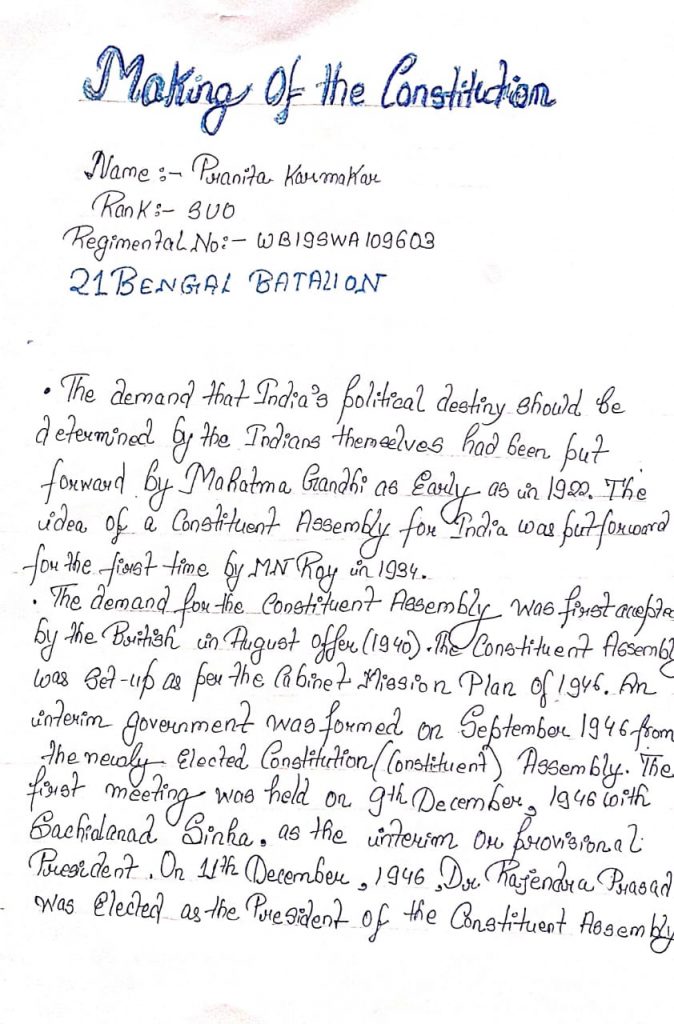 Making Of the Constitution
Name :- Pranita Karmakar
Rank :- SUO
Regimental No :- WB19SWA109603
21 BENGAL BATALION
• The demand that India's political destiny should be
determined by the Indians themselves had been put
forward by Mahatma Gandhi as Early as in 1922. The
idea of a Constituent Assembly for India was put forward
for the first time by MN Roy in 1934.
• The demand for the Constituent Assembly was first accepte
by the British in August offer (1940). The Constituent Assembl
was set-up as per the Cabinet Mission Plan of 1946. An
interim government was formed on September 1946 from
the newly Elected Constitution (Constituent) Assembly. The
first meeting was held on 9th December, 1946 with
Sachidanad Sinha, as the interim or provisional
President. On 11th December, 1946, Dr. Rajendra Prasad
was Elected as the President of the Constituent Assembly